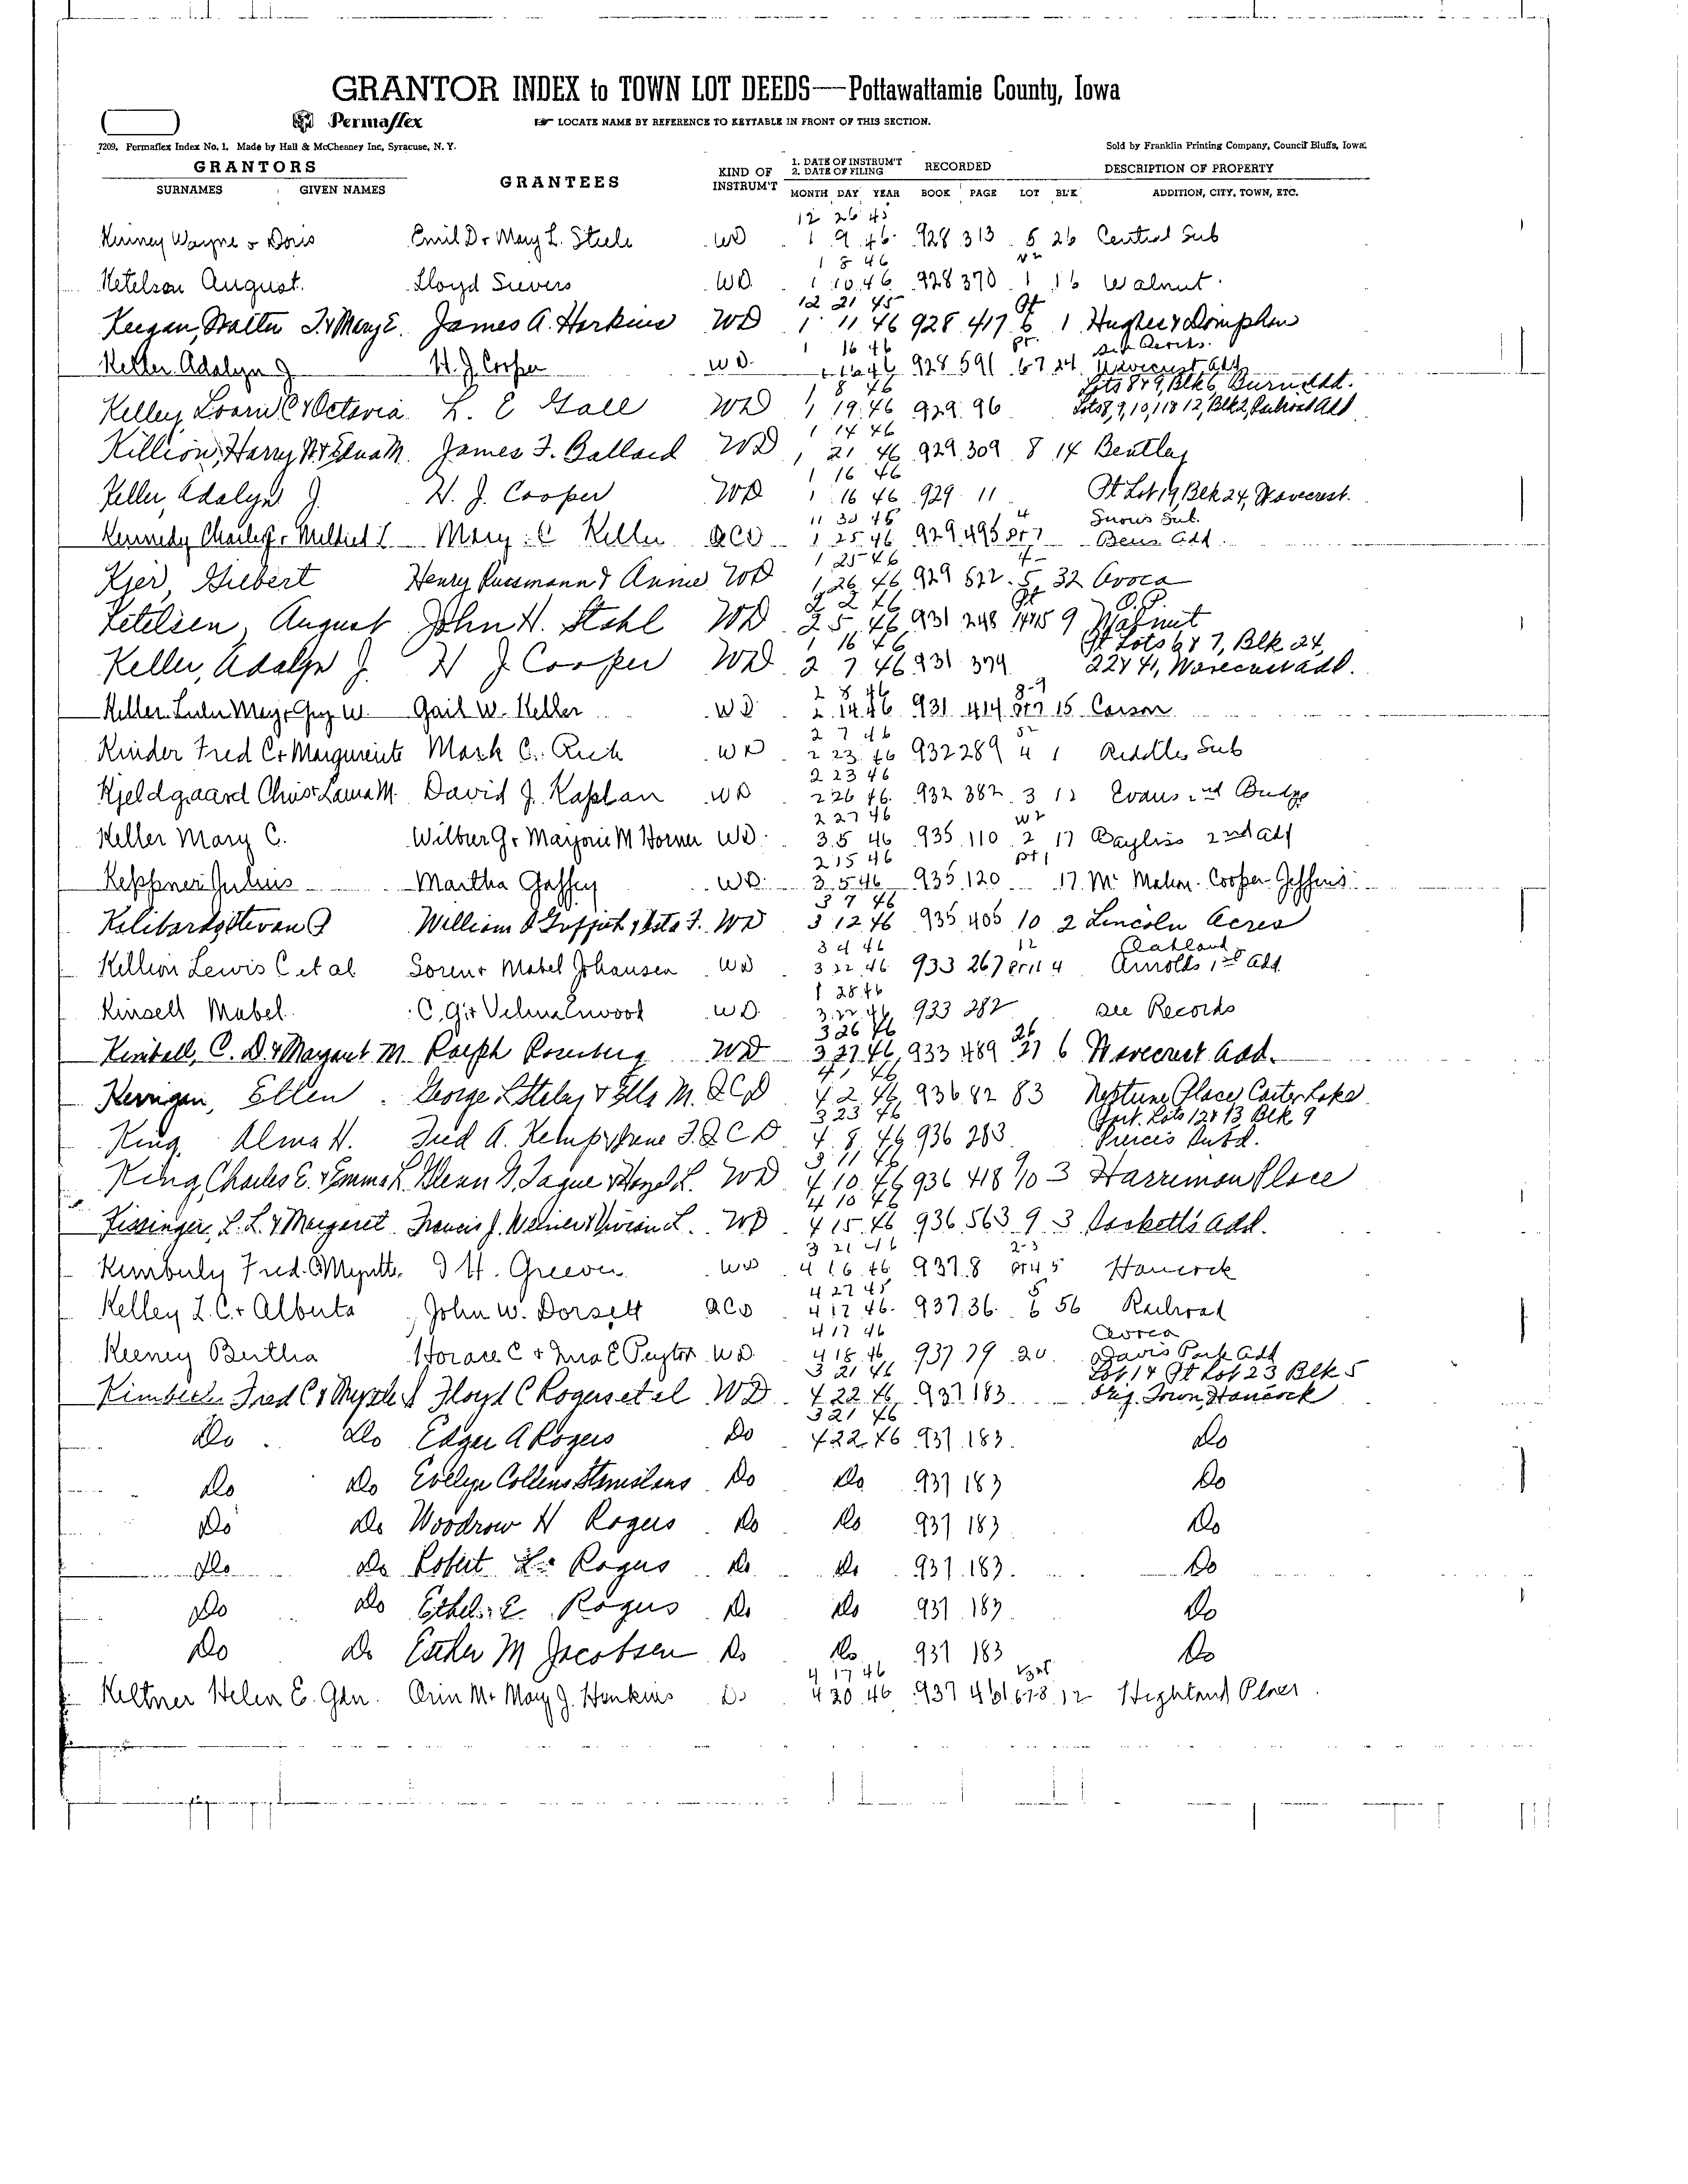 GRANTOR INDEX to TOWN LOT DEEDS—Pottawattamie County, Iowa
Permaflex ☞ LOCATE NAME BY REFERENCE TO KEYTABLE IN FRONT OF THIS SECTION.
7209. Permaflex Index No. 1. Made by Hall & McChesney Inc, Syracuse, N. Y. Sold by Franklin Printing Company, Council Bluffs, Iowa.
GRANTORS GRANTEES KIND OF INSTRUM'T 1. DATE OF INSTRUM'T 2. DATE OF FILING RECORDED DESCRIPTION OF PROPERTY
SURNAMES GIVEN NAMES MONTH DAY YEAR BOOK PAGE LOT BL'K ADDITION, CITY, TOWN, ETC.
12 26 45
Kinney Wayne & Doris Emil D & Mary L. Steele WD 1 9 46 928 313 5 26 Central Sub
1 8 46
Ketelsen August Lloyd Sievers WD 1 10 46 928 370 1 16 Walnut
12 21 45 Pt
Keegan, Walter J. & Mary E. James A. Harkins WD 1 11 46 928 417 6 1 Hughes & Doniphan
1 16 46 pt.
Keller Adalyn J H. J. Cooper WD 1 16 46 928 591 67 24 Wavecrest Add
1 8 46 Lots 8 & 9, Blk 6 Burns Add.
Kelley, Loarn C & Octavia L. E Gall WD 1 19 46 929 96 Lots 8, 9, 10, 11 & 12, Blk 2, Railroad Add
1 14 46
Killion, Harry H & Edna M. James F. Ballard WD 1 21 46 929 309 8 14 Bentley
1 16 46
Keller, Adalyn J. H. J. Cooper WD 1 16 46 929 11 Pt Lot 19, Blk 24, Wavecrest.
11 30 45 4 Sub.
Kennedy Charles Mary C Keller QCD 1 25 46 929 495 pt 7 Add.
1 25 46 4
Kjer, Gilbert Henry Russmann & Annie WD 1 26 46 929 522 5 32 Avoca
2 2 46 Pt O.P.
Ketelsen, August John H. Stahl WD 2 5 46 931 248 14 & 15 9 Walnut
1 16 46 Pt Lots 6 & 7, Blk 24,
Keller, Adalyn J. H J Cooper WD 2 7 46 931 379 22 & 41, Wavecrest Add.
2 8 46 8-9
Keller Lulu May & Guy W. Gail W. Keller WD 2 14 46 931 414 pt 7 15 Carson
2 7 46
Kinder Fred C & Marguerite Mark C. Rich WD 2 23 46 932 289 4 1 Riddles Sub
2 23 46
Kjeldgaard Chris & Laura M. David J. Kaplan WD 2 26 46 932 382 3 12 Evans 2nd Bridge
2 27 46 W2
Keller Mary C. Wilbur G & Marjorie M Horner WD 3 5 46 935 110 2 17 Bayliss 2nd Add
2 15 46 pt 1
Keppner Julius Martha Gaffey WD 3 5 46 935 120 17 McMahon-Cooper-Jefferis
3 7 46
William WD 3 12 46 935 405 10 2 Lincoln Acres
3 4 46 12 Oakland
Killion Lewis C et al Soren & Mabel Johansen WD 3 22 46 933 267 pt 11 4 Arnolds 1st Add
1 28 46
Kinsell Mabel C. G. & Velma Enwood WD 3 22 46 933 282 See Records
3 26 46 26
Kimball, C. D. & Margaret M. Ralph Rosenberg WD 3 27 46 933 489 27 6 Wavecrest Add.
4 1 46
Kerrigan, Ellen George L Steley & Ella M. QCD 4 2 46 936 82 83 Neptune Place, Carter Lake
3 23 46 Part. Lots 12 & 13 Blk 9
King, Alma H. Fred A. Kemp & Irene J. QCD 4 8 46 936 283 Pierces Subd.
3 11 46 9
King, Charles E. & Emma L. Glenn Tague & Hazel L. WD 4 10 46 936 418 10 3 Harrimon Place
4 10 46
Kissinger, L. L. & Margaret Francis J. Weiner & Vivian L. WD 4 15 46 936 563 9 3 Sacketts Add.
3 21 46 2-3
Kimberly Fred C & Myrtle J. H. Greever WD 4 16 46 937 8 pt 4 5 Hancock
4 27 45 5
Kelley L. C. & Alberta John W. Dorsett QCD 4 17 46 937 36 6 56 Railroad
4 17 46 Avoca
Keeney Bertha Horace C & Ina E Peyton WD 4 18 46 937 79 20 Davis Park Add
3 21 46 Lot 14 Pt Lot 23 Blk 5
Kimberly Fred C & Myrtle Floyd C Rogers et al WD 4 22 46 937 183 Orig. Town, Hancock
3 21 46
Do Do Edgar A Rogers Do 4 22 46 937 183 Do
Do Do Evelyn Collins Stanislaus Do Do 937 183 Do
Do Do Woodrow H Rogers Do Do 937 183 Do
Do Do Robert L. Rogers Do Do 937 183 Do
Do Do Ethel E. Rogers Do Do 937 183 Do
Do Do Esther M Jacobsen Do Do 937 183 Do
4 17 46
Keltner Helen E. Gdn. Orin M & Mary J. Henkins Do 4 30 46 937 461 678 12 Highland Place